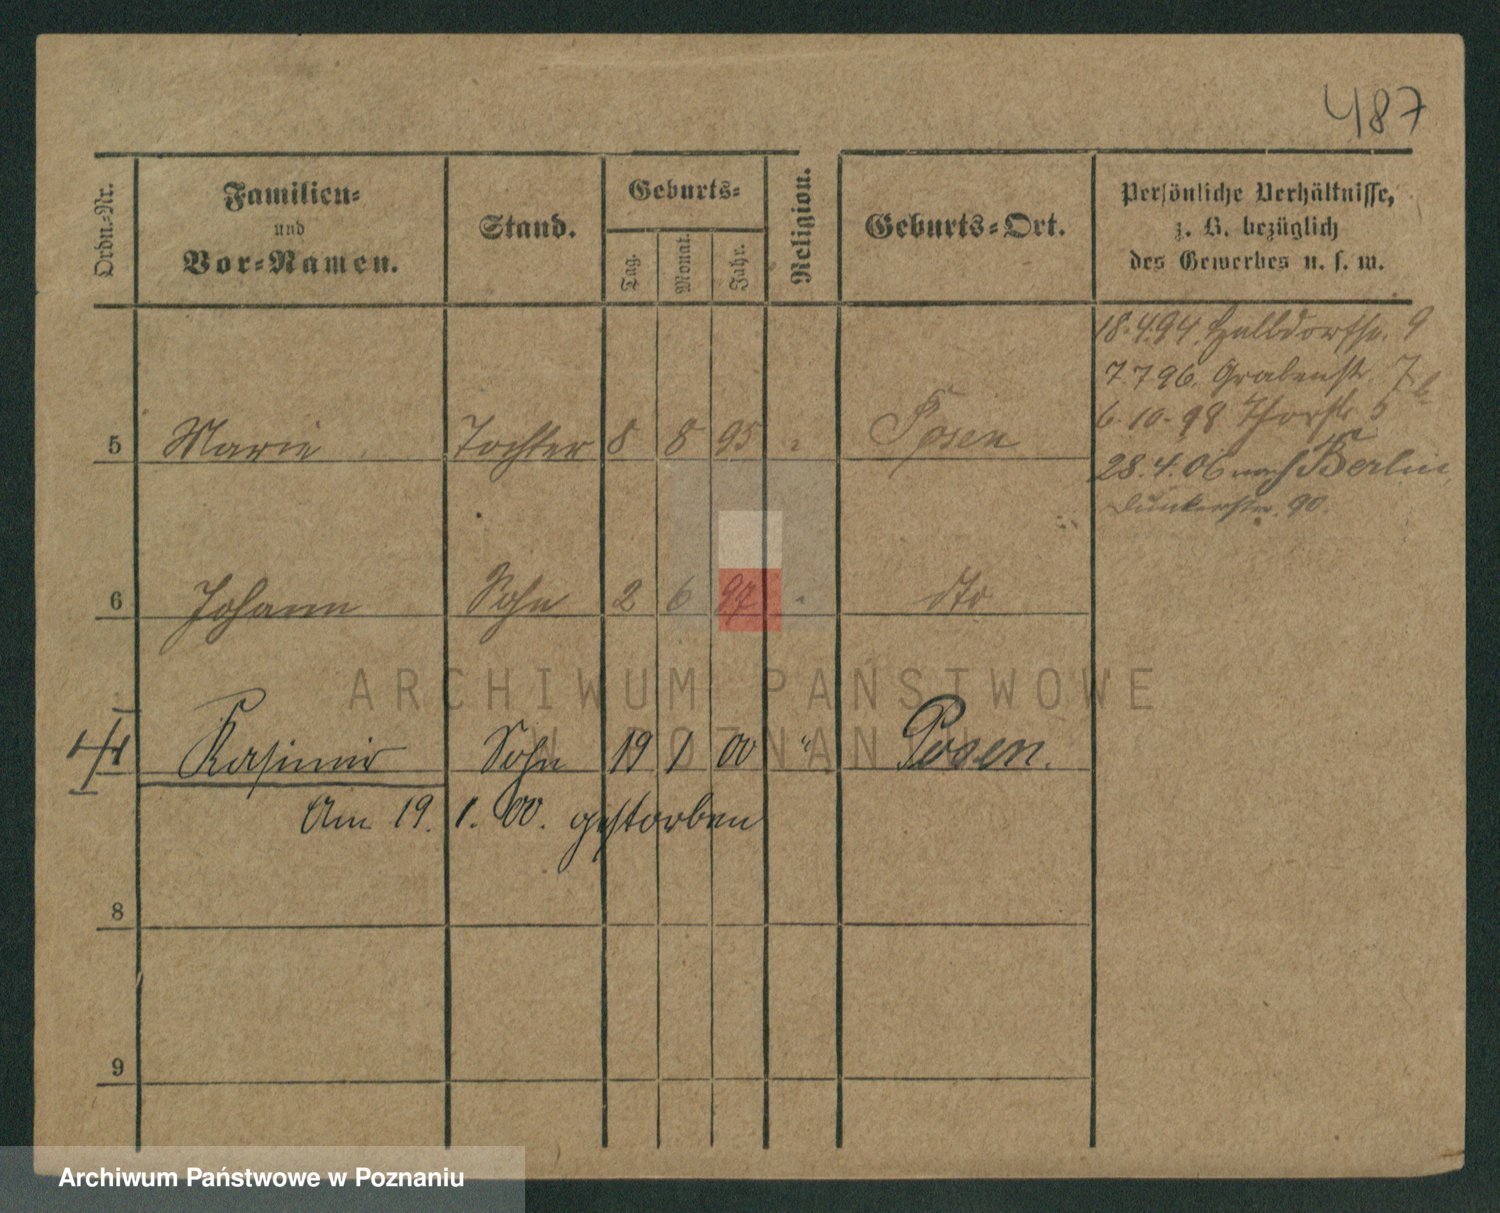 487
Ordn.-Nr.
Familien-
und
Vor-Namen.
Stand.
Geburts-
Tag.
Monat.
Jahr.
Religion.
Geburts-Ort.
Persönliche Verhältnisse,
z. B. bezüglich
des Gewerbes u. s. w.
18.4.94. Halldorfstr. 9
7.7.96. Grabenstr. 7
6.10.98 Thorstr. 5
28.4.06 nach Berlin,
Dunkerstr. 90.
5 Marie Tochter 8 8 95 " Posen
6 Johann Sohn 2 6 97 " dto
Kasimir Sohn 19 1 00 " Posen.
Am 19. 1. 00. gestorben
8
9
ARCHIWUM PAŃSTWOWE
W POZNANIU
Archiwum Państwowe w Poznaniu